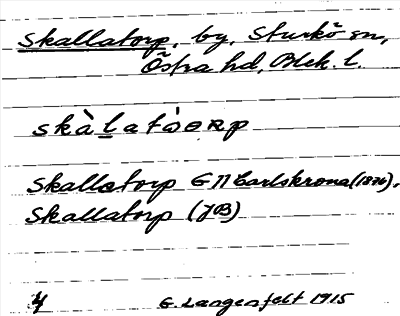 Skallatorp, by, Sturkö sn,
Östra hd, Blek. l.
skàlatȯ̀ɵʀp
Skallatorp GK Carlskrona (1876),
Skallatorp (JB)
G. Langenfelt 1915